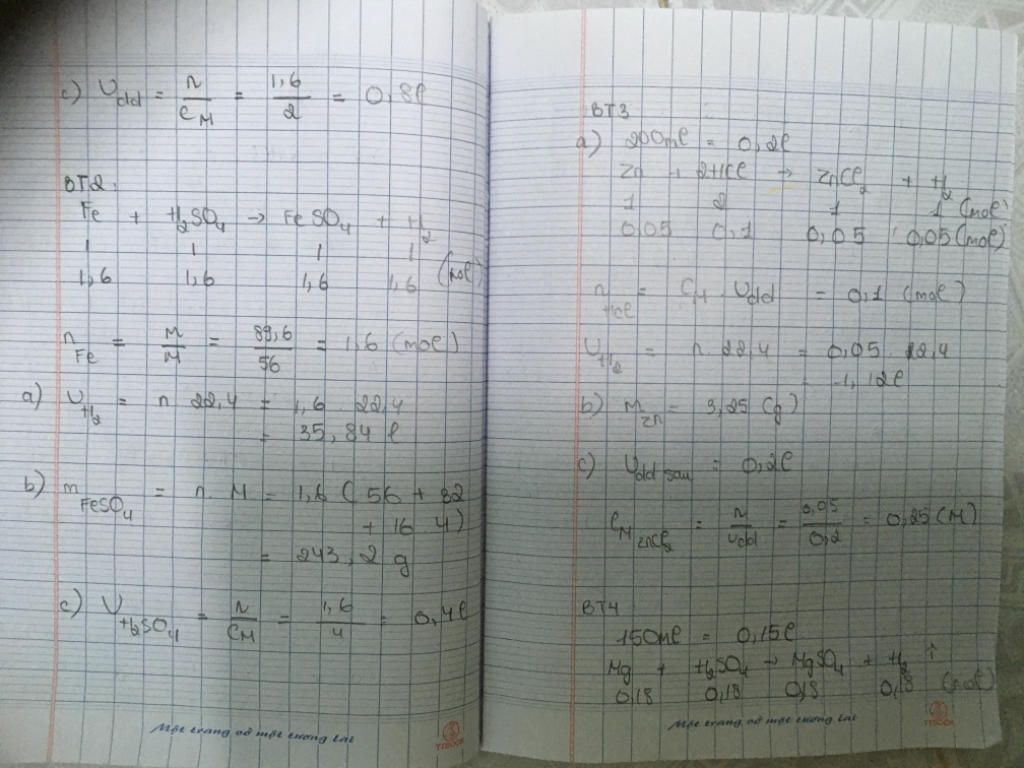 c) Vdd = n/CM = 1,6/2 = 0,8l
BT2:
Fe + H₂SO₄ → FeSO₄ + H₂
1 1 1 1
1,6 1,6 1,6 1,6 (mol)
nFe = m/M = 89,6/56 = 1,6 (mol)
a) VH₂ = n 22,4 = 1,6 22,4
= 35,84 l
b) mFeSO₄ = n. M = 1,6 ( 56 + 32
+ 16 4)
= 243,2 g
c) VH₂SO₄ = n/CM = 1,6/4 = 0,4l
Một trang vở một tương lai
BT3
a) 200ml = 0,2l
Zn + 2HCl → ZnCl₂ + H₂
1 2 1 1 (mol)
0,05 0,1 0,05 0,05 (mol)
nHCl = CM . Vdd = 0,1 (mol)
VH₂ = n. 22,4 = 0,05. 22,4
= 1,12l
b) mZn = 3,25 (g)
c) Vdd sau = 0,2l
CM ZnCl₂ = n/Vdd = 0,05/0,2 = 0,25 (M)
BT4
150ml = 0,15l
Mg + H₂SO₄ → MgSO₄ + H₂ ↑
0,18 0,18 0,18 0,18 (mol)
Một trang vở một tương lai